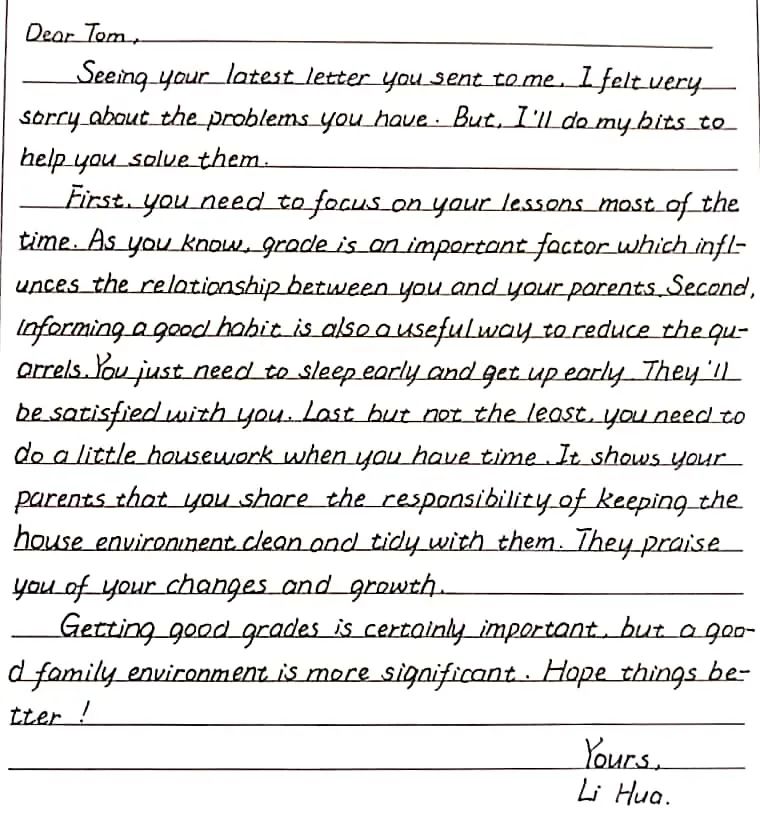 Dear Tom,
Seeing your latest letter you sent to me, I felt very
sorry about the problems you have. But, I'll do my bits to
help you solve them.
First, you need to focus on your lessons most of the
time. As you know, grade is an important factor which infl-
unces the relationship between you and your parents. Second,
informing a good habit is also a useful way to reduce the qu-
arrels. You just need to sleep early and get up early. They'll
be satisfied with you. Last but not the least, you need to
do a little housework when you have time. It shows your
parents that you share the responsibility of keeping the
house environment clean and tidy with them. They praise
you of your changes and growth.
Getting good grades is certainly important, but a goo-
d family environment is more significant. Hope things be-
tter!
Yours,
Li Hua.